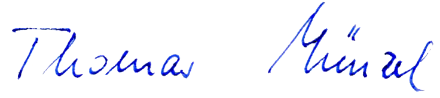 Thomas Münzel